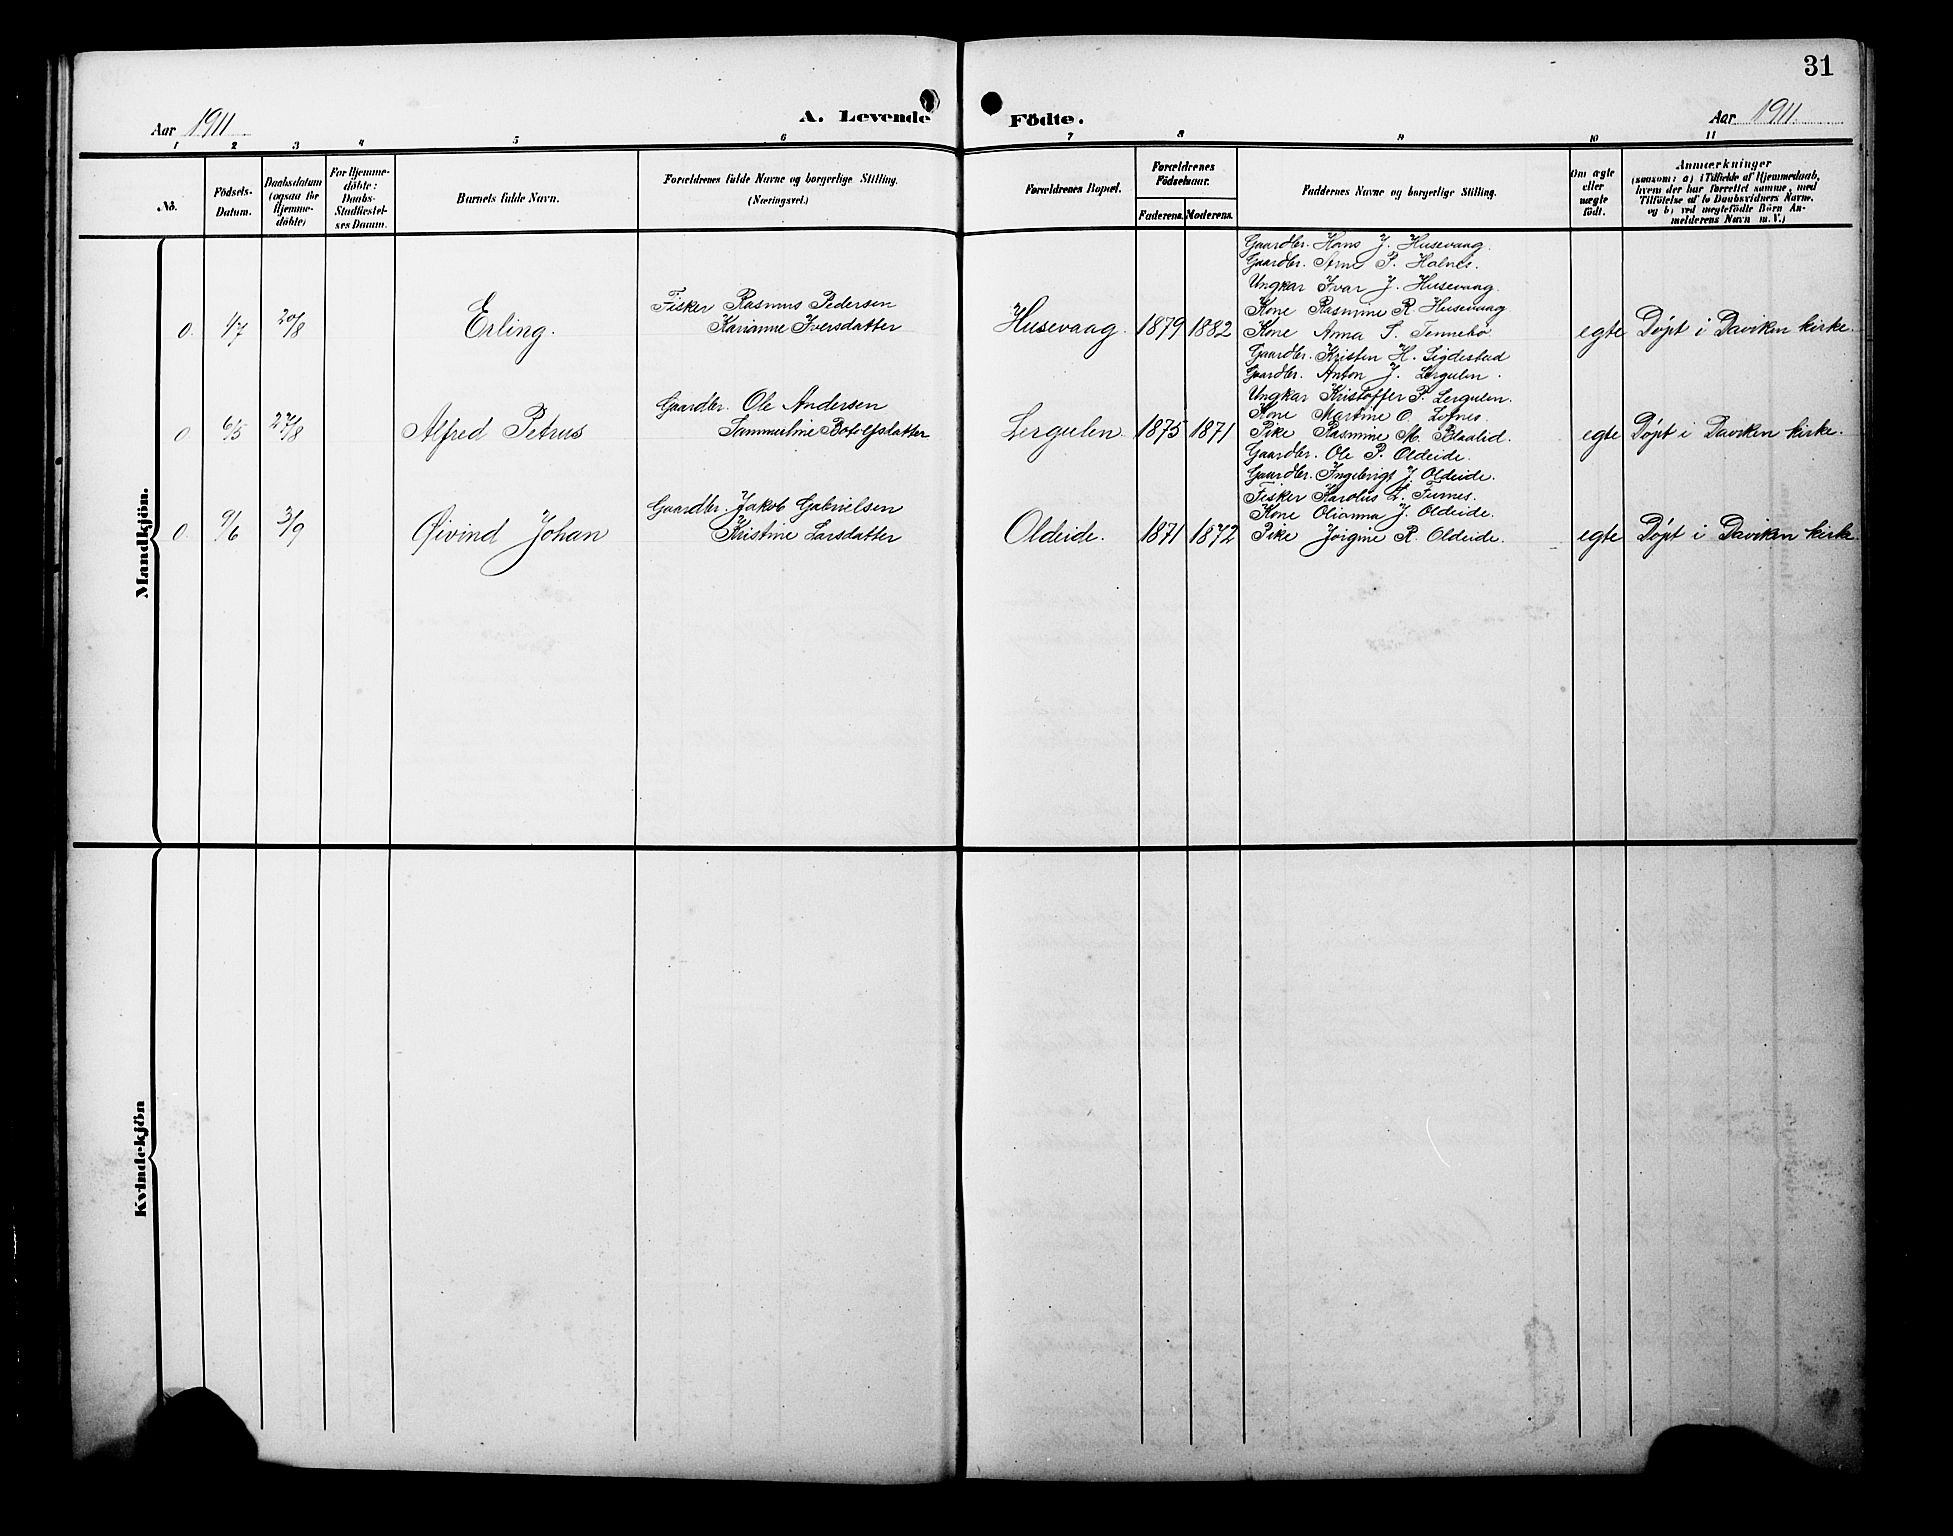 31
Aar 1911
A. Levende Födte.
Aar 1911.
1 2 3 4 5 6 7 8 9 10 11
No.
Födsels-
Datum.
Daabsdatum
(ogsaa for
Hjemme-
döbte)
For Hjemme-
döbte:
Daabs-
Stadfæstel-
ses Datum.
Barnets fulde Navn.
Forældrenes fulde Navne og borgerlige Stilling.
(Næringsvei.)
Forældrenes Bopæl.
Forældrenes
Födselsaar.
Faderens. Moderens.
Faddernes Navne og borgerlige Stilling.
Om ægte
eller
uægte
födt.
Anmærkninger
(saasom: a) i Tilfælde af Hjemmedaab,
hvem der har forrettet samme, med
Tilföielse af to Daabsvidners Navne,
og b) ved uægtefödte Börn An-
melderens Navn m. V.)
Mandkjön.
0. 4/7 20/8 Erling. Fisker Rasmus Pedersen
Karianne Iversdatter
Husevaag. 1879 1882
Gaardbr. Hans J. Husevaag.
Gaardbr. Arne P. Halnes.
Ungkar Ivar J. Husevaag.
Kone Rasmine R. Husevaag
Kone Anna S. Tennebø
egte Døpt i Daviken kirke.
0 6/5 27/8 Alfred Petrus Gaardbr. Ole Andersen
Sammeline Botolfsdatter
Lergulen. 1875 1871
Gaardbr. Kristen H. Sigdestad
Gaardbr. Anton J. Lergulen.
Ungkar Kristoffer P. Lergulen.
Kone Martine O. Lofnes.
Pike Rasmine M. Blaalid.
egte Døpt i Daviken kirke.
0. 9/6 3/9 Øivind Johan Gaardbr. Jakob Gabrielsen
Kristine Larsdatter
Oldeide. 1871 1872
Gaardbr. Ole P. Oldeide.
Gaardbr. Ingebrigt J. Oldeide.
Fisker Karolus L. Furnes.
Kone Olianna J. Oldeide.
Pike Jørgine R. Oldeide.
egte Døpt i Daviken kirke
Kvindekjön